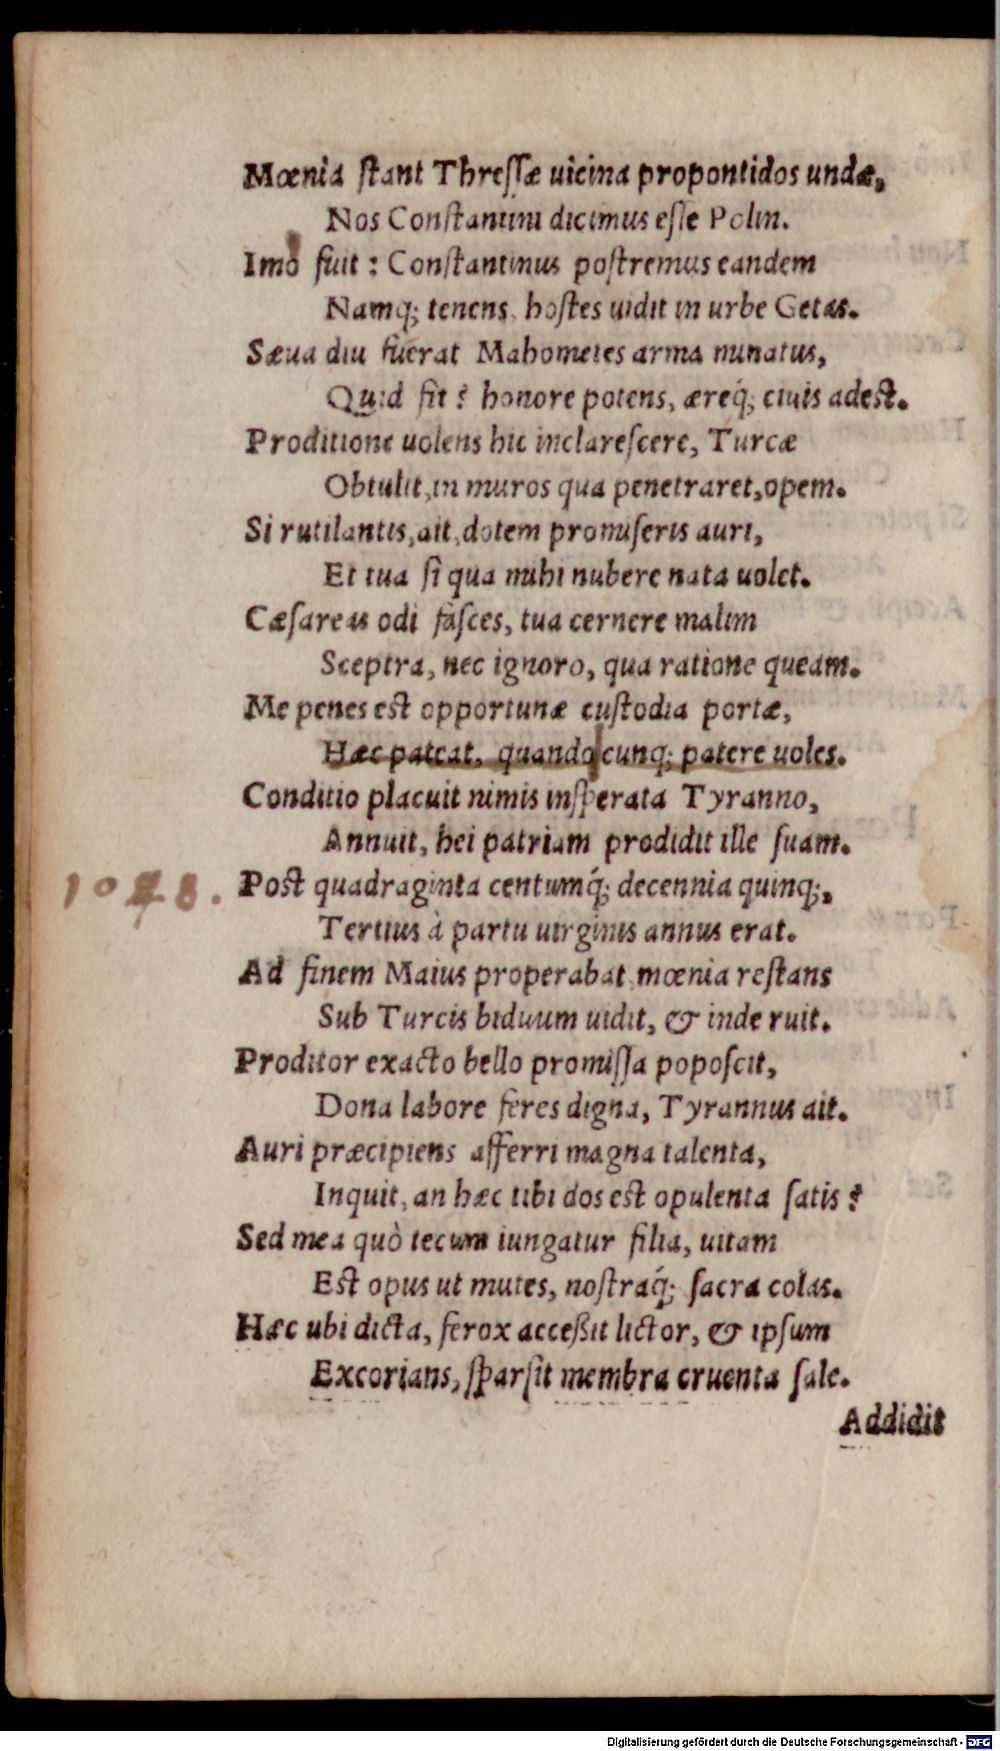 Mœnia ſtant Threſſæ uicina propontidos undæ,
Nos Conſtantini dicimus eſſe Polin.
Imò fuit : Conſtantinus poſtremus eandem
Namq; tenens, hoſtes uidit in urbe Getas.
Sæua diu fuerat Mahometes arma minatus,
Quid fit? honore potens, æreq́; ciuis adest.
Proditione uolens hic inclareſcere, Turcæ
Obtulit, in muros qua penetraret, opem.
Si rutilantis, ait, dotem promiſeris auri,
Et tua ſi qua mihi nubere nata uolet.
Cæſareas odi faſces, tua cernere malim
Sceptra, nec ignoro, qua ratione queam.
Me penes est opportunæ cuſtodia portæ,
Hæc pateat, quandocunq; patere uoles.
Conditio placuit nimis inſperata Tyranno,
Annuit, hei patriam prodidit ille ſuam.
1048. Post quadraginta centumq́; decennia quinq;,
Tertius à partu uirginis annus erat.
Ad finem Maius properabat, mœnia reſtans
Sub Turcis biduum uidit, & inde ruit.
Proditor exacto bello promiſſa popoſcit,
Dona labore feres digna, Tyrannus ait.
Auri præcipiens afferri magna talenta,
Inquit, an hæc tibi dos est opulenta ſatis?
Sed mea quò tecum iungatur filia, uitam
Est opus ut mutes, nostraq́; ſacra colas.
Hæc ubi dicta, ferox acceßit lictor, & ipſum
Excorians, ſparſit membra cruenta ſale.
Addidit
Digitalisierung gefördert durch die Deutsche Forschungsgemeinschaft - DFG